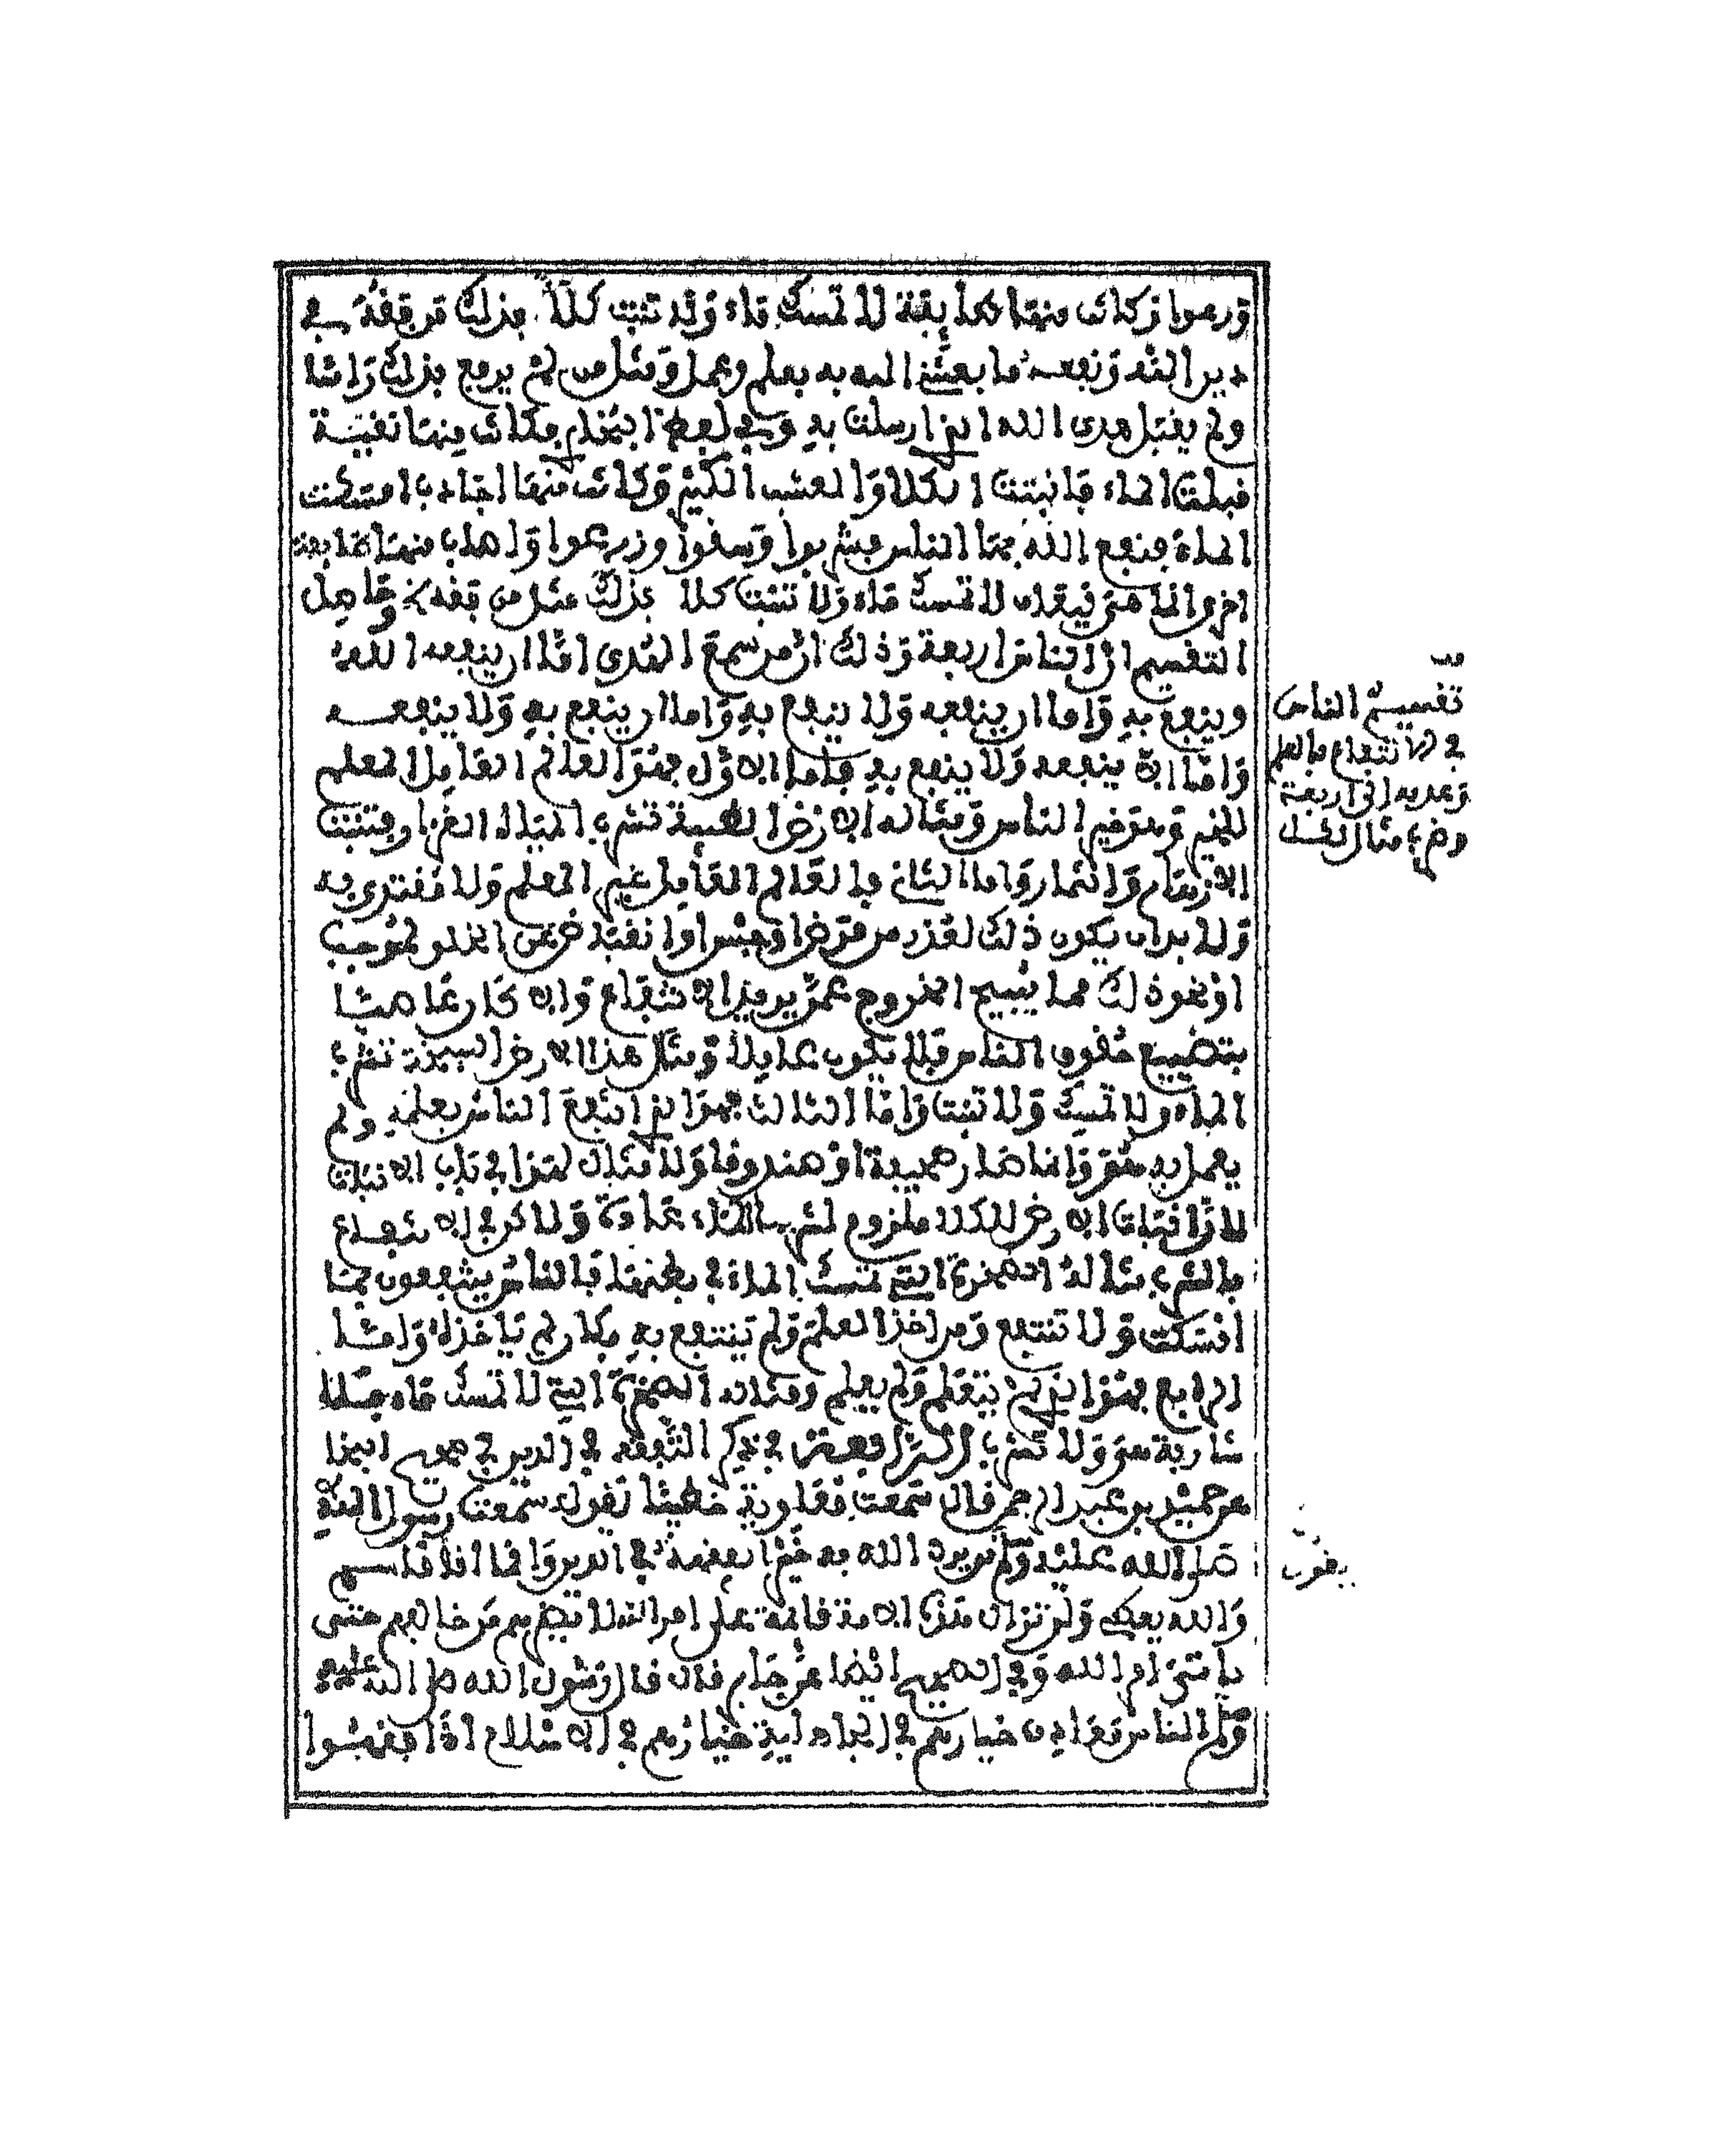 ورعوا وكان منها طائفة لا تمسك ماء ولا تنبت كلأ فذلك من فقه في
دين الله ونفعه ما بعثني الله به فعلم وعمل ومثل من لم يرفع بذلك رأسا
ولم يقبل هدى الله الذي أرسلت به وفي لفظ البخاري فكان منها نقية
قبلت الماء فأنبتت الكلأ والعشب الكثير وكان منها أجادب أمسكت
الماء فنفع الله بها الناس فشربوا وسقوا وزرعوا وأصاب منها طائفة
أخرى إنما هي قيعان لا تمسك ماء ولا تنبت كلأ فذلك مثل من فقه وحاصل
التقسيم أن الناس أربعة وذلك أن من سمع الهدى إما أن ينفعه الله
وينفع به وإما أن ينفعه ولا ينفع به وإما أن ينفع به ولا ينفعه
وإما أن لا ينفعه ولا ينفع به فأما الأول فهو العالم العامل المعلم
للخير وهو خير الناس ومثاله الأرض الطيبة تشرب المياه الغزار وتنبت
الأزهار والثمار وأما الثاني فالعالم العامل غير المعلم ولا مقتدى به
ولا بد أن يكون ذلك لعذر من مرض أو حبس أو انقباض عن الخلق لموجب
أو نحو ذلك مما يبيح الخروج عمن يريد الانتفاع وإلا كان عاصيا
بتضييع حقوق الناس فلا يكون عاملا ومثل هذا الأرض السبخة تشرب
الماء ولا تمسك ولا تنبت وأما الثالث فهو الذي انتفع الناس بعلمه ولم
يعمل به هو وإنما صار مصيدة أو صندوقا ولا مثال لهذا في باب الإنبات
لأن إنبات الأرض للكلأ ملزوم لشربها الماء عادة ولكن في الانتفاع
بالشرب مثاله الصخرة التي تمسك الماء في بطنها فالناس ينتفعون بها
أمسكت ولا تنتفع ومن أخذ العلم ولم ينتفع به فكأن لم يأخذه وأما
الرابع فهو الذي لم يتعلم ولم يعلم ومثاله الصخرة التي لا تمسك ماء فلا
شاربة هي ولا تشرب الرابعة في ذكر التفقه في الدين في صحيح البخاري
عن حميد بن عبد الرحمن قال سمعت معاوية خطيبا يقول سمعت رسول الله
صلى الله عليه وسلم من يرد الله به خيرا يفقهه في الدين وإنما أنا قاسم
والله يعطي ولن تزال هذه الأمة قائمة على أمر الله لا يضرهم من خالفهم حتى
يأتي أمر الله وفي الصحيح أيضا عن جابر قال قال رسول الله صلى الله عليه
وسلم الناس معادن خيارهم في الجاهلية خيارهم في الإسلام إذا فقهوا
تقسيم الناس
في الانتفاع بالعلم
وعدمه إلى أربعة
وضرب مثال لذلك
يقول